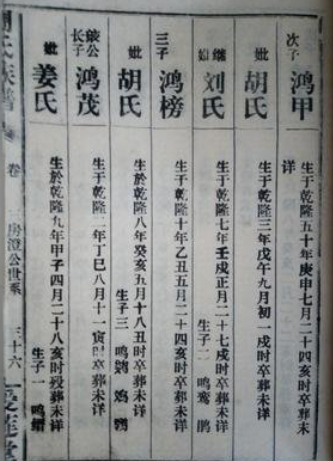 次子 鸿甲
生于乾隆五十年庚申七月二十四亥时卒葬未
详
妣 胡氏
生于乾隆三年戊午九月初一戌时卒葬未详
继妣 刘氏
生于乾隆七年壬戌正月二十七戌时卒葬未详
生子二 鸣鸾 鹏
三子 鸿榜
生于乾隆十年乙丑五月二十四亥时卒葬未详
妣 胡氏
生於乾隆八年癸亥五月十八丑时卒葬未详
生子三 鸣
公长子 鸿茂
生于乾隆二年丁巳八月十一寅时卒葬未详
妣 姜氏
生於乾隆九年甲子四月二十八亥时殁葬未详
生子一 鸣
卷 三房澄公世系 三十六